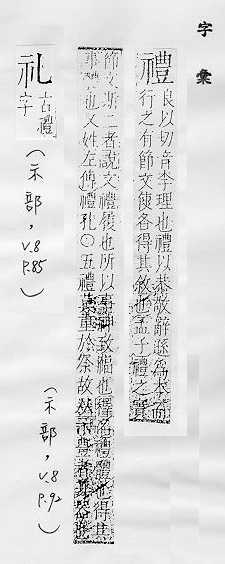 字彙
禮 良以切音李理也禮以恭敬辭遜為本而
行之有節文使各得其敘也孟子禮之實
節文斯二者說文禮履也所以事神致福也得名禮體也得其
事體也又姓左傳禮孔〇五禮莫重於祭故从示
(示部, V.8 P.92)
礼 古禮字
(示部, V.8 P.85)